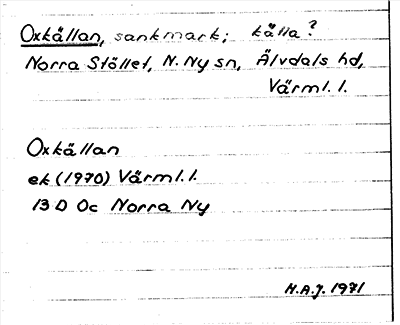 Oxkällan, sankmark; källa?
Norra Stöllet, N. Ny sn, Älvdals hd,
Värml. l.
Oxkällan
ek (1970) Värml. l.
13 D Oc Norra Ny
H.A.J. 1971